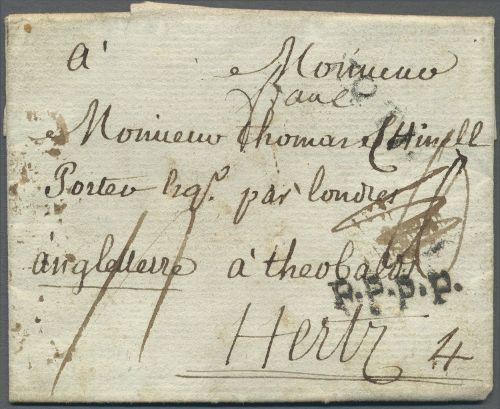 à Monsieur
franc
Monsieur Thomas
Porter Esqr. par londres
angleterre à theobalds
P.P.P.P.
Hertz 4